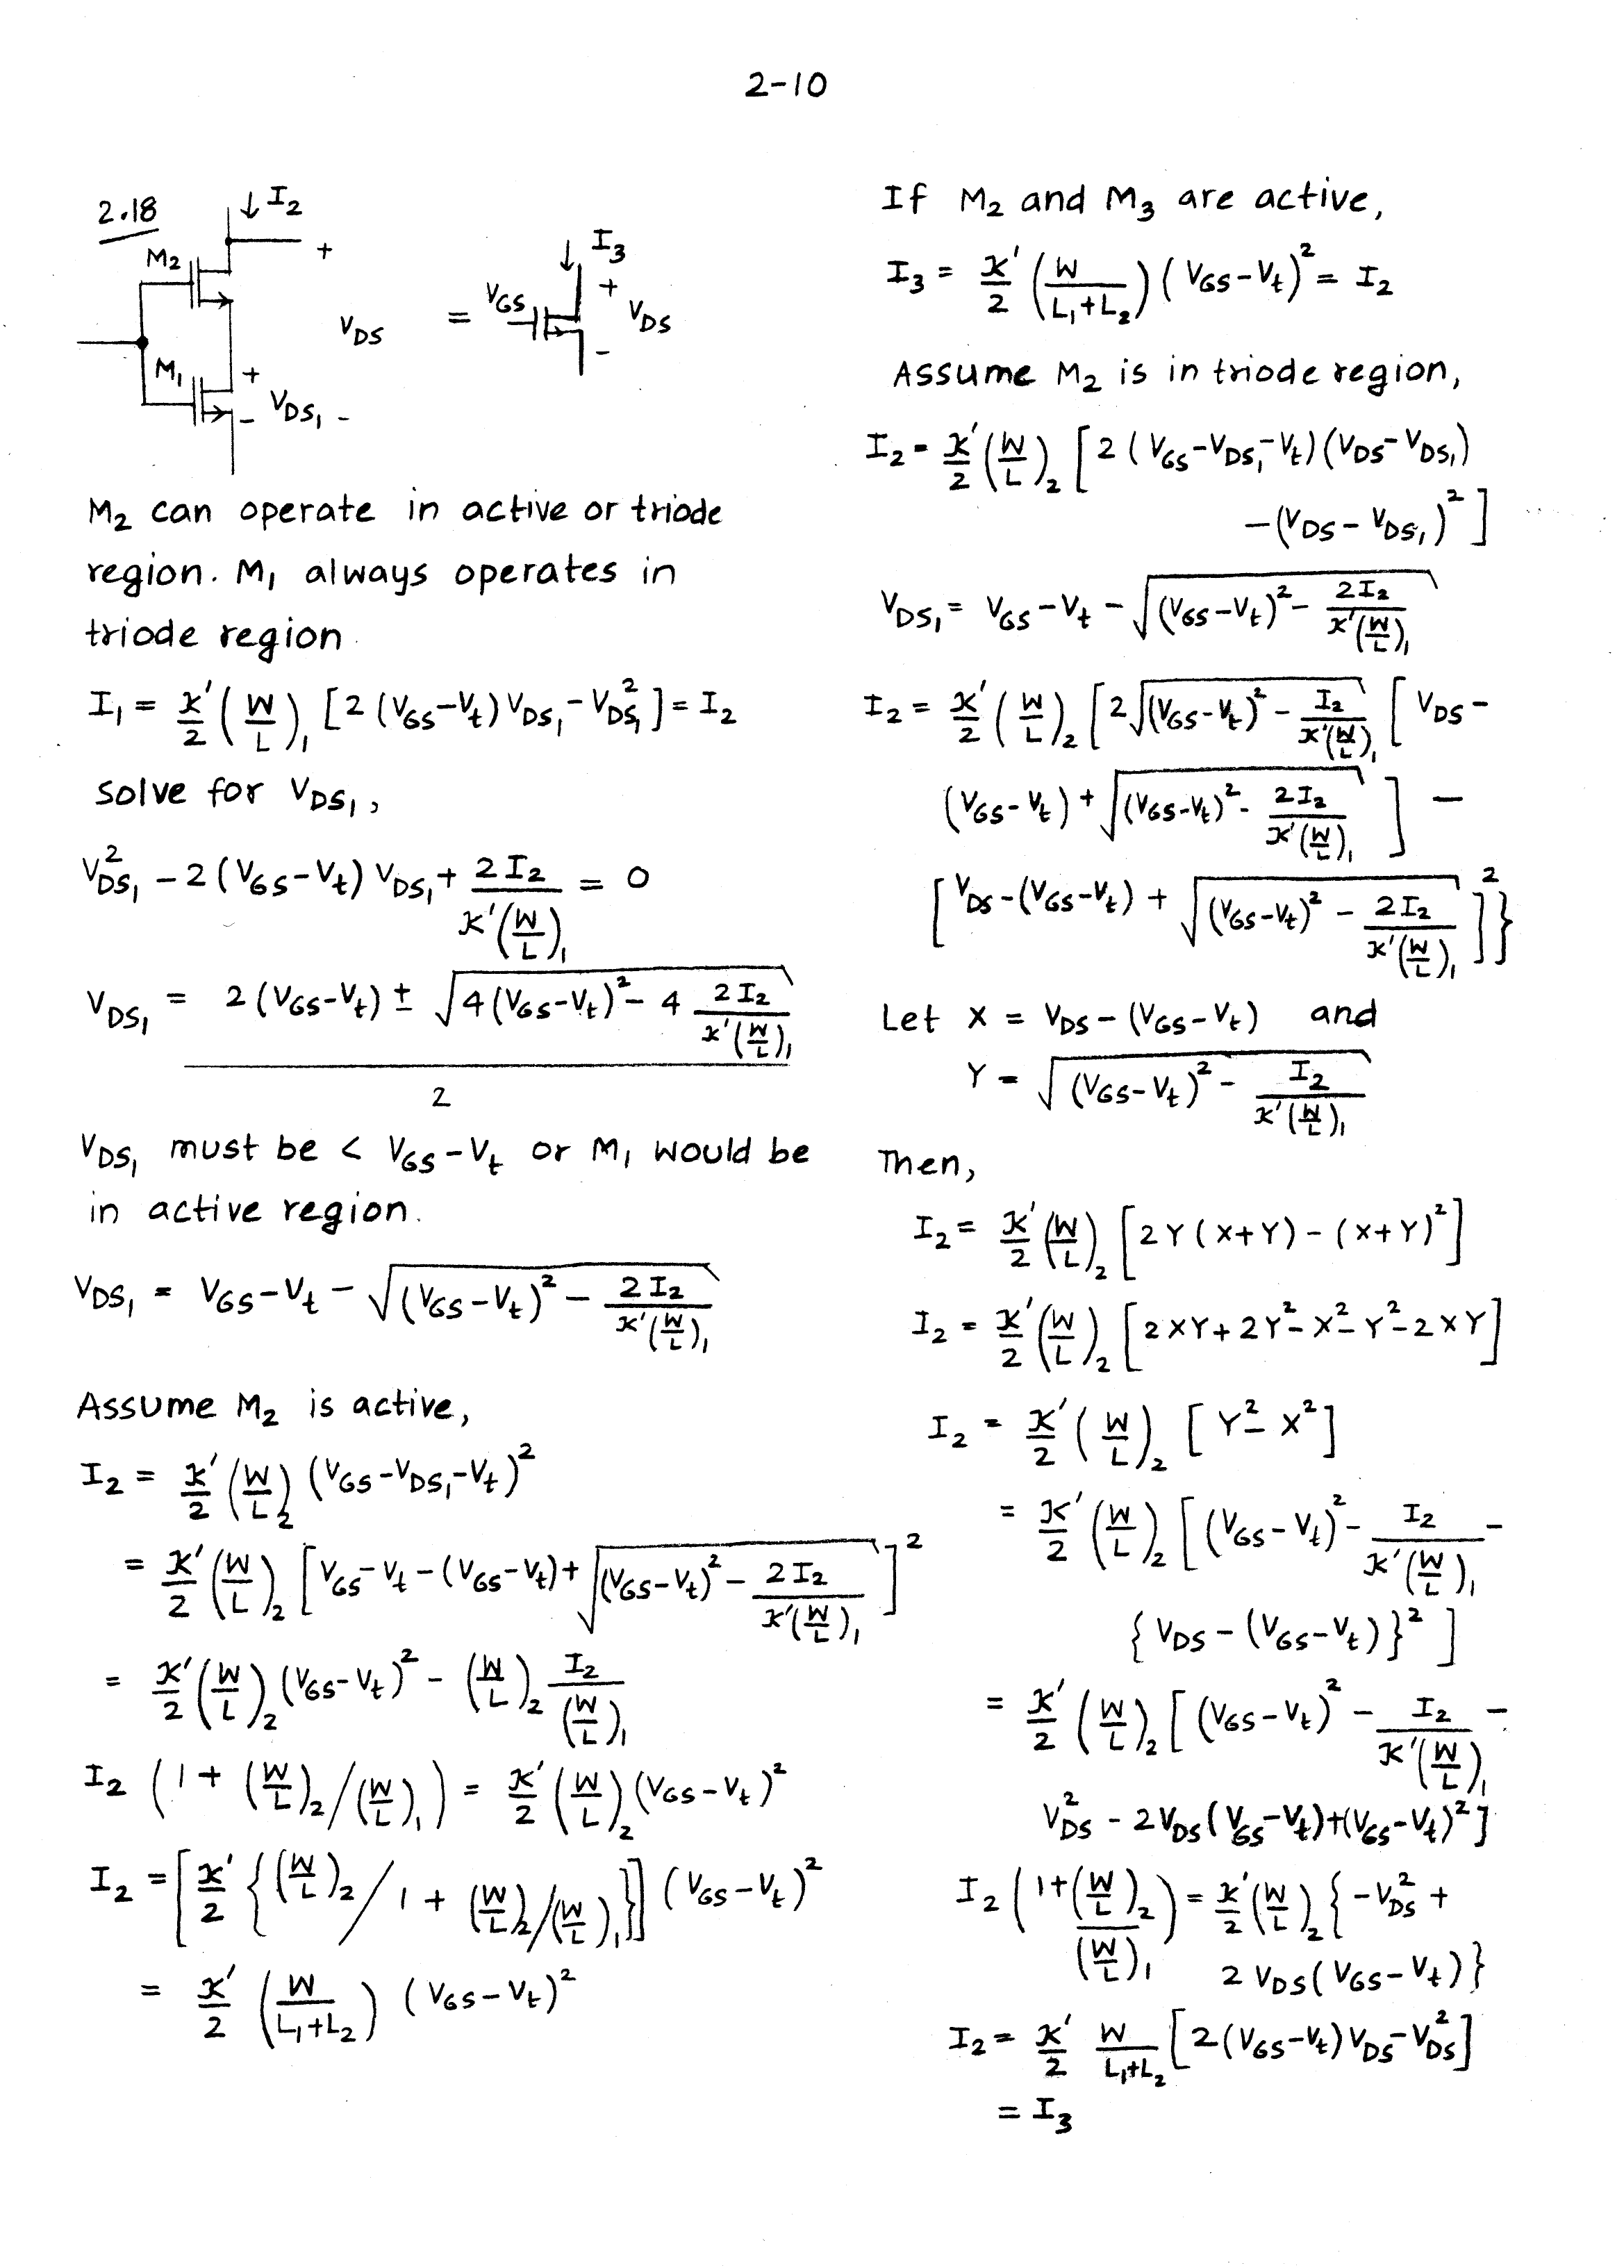 2-10
2.18
↓ I₂
+
M₂
V_DS
M₁
+
V_DS₁
-
-
=
V_GS
↓ I₃
+
V_DS
-
M₂ can operate in active or triode
region. M₁ always operates in
triode region.
I₁ = k'/2 (W/L)₁ [2(V_GS-V_t)V_DS₁-V_DS₁²] = I₂
solve for V_DS₁,
V_DS₁² - 2(V_GS-V_t)V_DS₁ + 2I₂/(k'(W/L)₁) = 0
V_DS₁ = (2(V_GS-V_t) ± √(4(V_GS-V_t)² - 4 2I₂/(k'(W/L)₁)))/2
V_DS₁ must be < V_GS-V_t or M₁ would be
in active region.
V_DS₁ = V_GS-V_t - √((V_GS-V_t)² - 2I₂/(k'(W/L)₁))
Assume M₂ is active,
I₂ = k'/2 (W/L)₂ (V_GS-V_DS₁-V_t)²
= k'/2 (W/L)₂ [V_GS-V_t-(V_GS-V_t)+√((V_GS-V_t)² - 2I₂/(k'(W/L)₁))]²
= k'/2 (W/L)₂ (V_GS-V_t)² - (W/L)₂ I₂/(W/L)₁
I₂ (1 + (W/L)₂/(W/L)₁) = k'/2 (W/L)₂ (V_GS-V_t)²
I₂ = [k'/2 {(W/L)₂/1 + (W/L)₂/(W/L)₁}] (V_GS-V_t)²
= k'/2 (W/(L₁+L₂)) (V_GS-V_t)²
If M₂ and M₃ are active,
I₃ = k'/2 (W/(L₁+L₂)) (V_GS-V_t)² = I₂
Assume M₂ is in triode region,
I₂ = k'/2 (W/L)₂ [2(V_GS-V_DS₁-V_t)(V_DS-V_DS₁)
-(V_DS-V_DS₁)²]
V_DS₁ = V_GS-V_t - √((V_GS-V_t)² - 2I₂/(k'(W/L)₁))
I₂ = k'/2 (W/L)₂ [2√((V_GS-V_t)² - I₂/(k'(W/L)₁)) [V_DS-
(V_GS-V_t) + √((V_GS-V_t)² - 2I₂/(k'(W/L)₁))] -
[V_DS-(V_GS-V_t) + √((V_GS-V_t)² - 2I₂/(k'(W/L)₁))]²}
Let X = V_DS-(V_GS-V_t) and
Y = √((V_GS-V_t)² - I₂/(k'(W/L)₁))
Then,
I₂ = k'/2 (W/L)₂ [2Y(X+Y)-(X+Y)²]
I₂ = k'/2 (W/L)₂ [2XY+2Y²-X²-Y²-2XY]
I₂ = k'/2 (W/L)₂ [Y²-X²]
= k'/2 (W/L)₂ [(V_GS-V_t)² - I₂/(k'(W/L)₁) -
{V_DS-(V_GS-V_t)}²]
= k'/2 (W/L)₂ [(V_GS-V_t)² - I₂/(k'(W/L)₁) -
V_DS² - 2V_DS(V_GS-V_t)+(V_GS-V_t)²]
I₂ (1+(W/L)₂/(W/L)₁) = k'/2 (W/L)₂ {-V_DS² +
2V_DS(V_GS-V_t)}
I₂ = k'/2 W/(L₁+L₂) [2(V_GS-V_t)V_DS-V_DS²]
= I₃